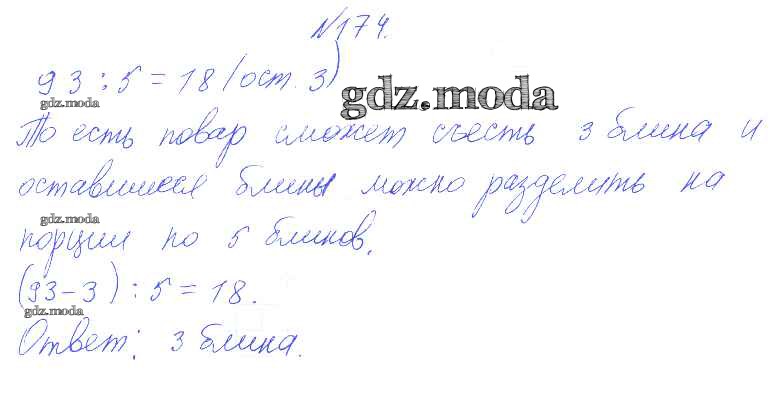 №174.
93 : 5 = 18 (ост. 3)
gdz.moda
gdz.moda
То есть повар сможет съесть 3 блина и
оставшиеся блины можно разделить на
gdz.moda
порции по 5 блинов.
(93-3) : 5 = 18.
gdz.moda
Ответ: 3 блина.